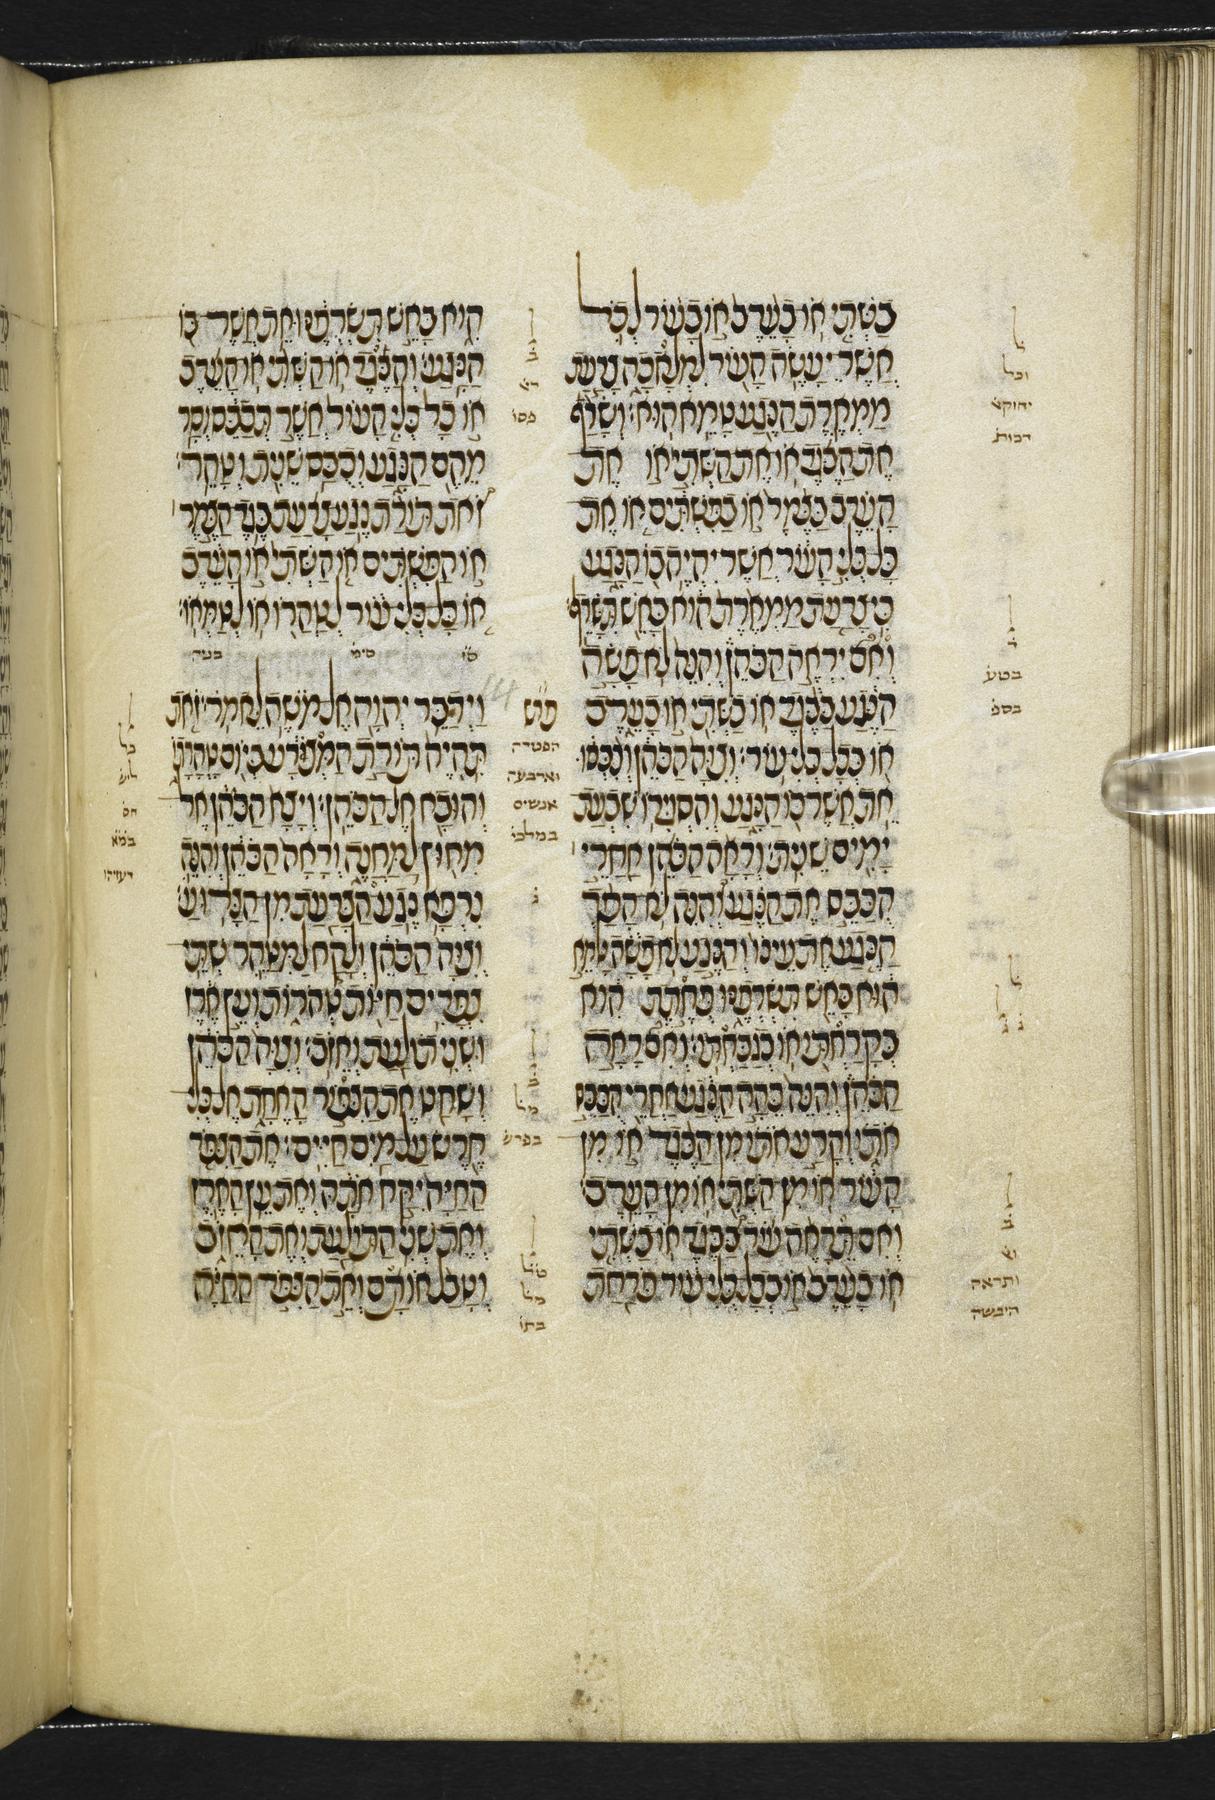 בשתי או בערב או בעור לכל
אשר יעשה העור למלאכה צרעת
ממארת הנגע טמא הוא׃ ושרף
את הבגד או את השתי או את
הערב בצמר או בפשתים או את
כל כלי העור אשר יהיה בו הנגע
כי צרעת ממארת הוא באש תשרף׃
ואם יראה הכהן והנה לא פשה
הנגע בבגד או בשתי או בערב
או בכל כלי עור׃ וצוה הכהן וכבסו
את אשר בו הנגע והסגירו שבעת
ימים שנית׃ וראה הכהן אחרי
הכבס את הנגע והנה לא הפך
הנגע את עינו והנגע לא פשה טמא
הוא באש תשרפנו פחתת הוא
בקרחתו או בגבחתו׃ ואם ראה
הכהן והנה כהה הנגע אחרי הכבס
אתו וקרע אתו מן הבגד או מן
העור או מן השתי או מן הערב׃
ואם תראה עוד בבגד או בשתי
או בערב או בכל כלי עור פרחת
הוא באש תשרפנו את אשר בו
הנגע׃ והבגד או השתי או הערב
או כל כלי העור אשר תכבס וסר
מהם הנגע וכבס שנית וטהר׃
זאת תורת נגע צרעת בגד הצמר
או הפשתים או השתי או הערב
או כל כלי עור לטהרו או לטמאו׃
וידבר יהוה אל משה לאמר׃ זאת
תהיה תורת המצרע ביום טהרתו
והובא אל הכהן׃ ויצא הכהן אל
מחוץ למחנה וראה הכהן והנה
נרפא נגע הצרעת מן הצרוע׃
וצוה הכהן ולקח למטהר שתי
צפרים חיות טהרות ועץ ארז
ושני תולעת ואזב׃ וצוה הכהן
ושחט את הצפור האחת אל כלי
חרש על מים חיים׃ את הצפר
החיה יקח אתה ואת עץ הארז
ואת שני התולעת ואת האזב
וטבל אותם ואת הצפר החיה
וכל
רבות
בטע
בספ
ותראה
היבשה
הפטרה
וארבעה
אנשים
במלכי